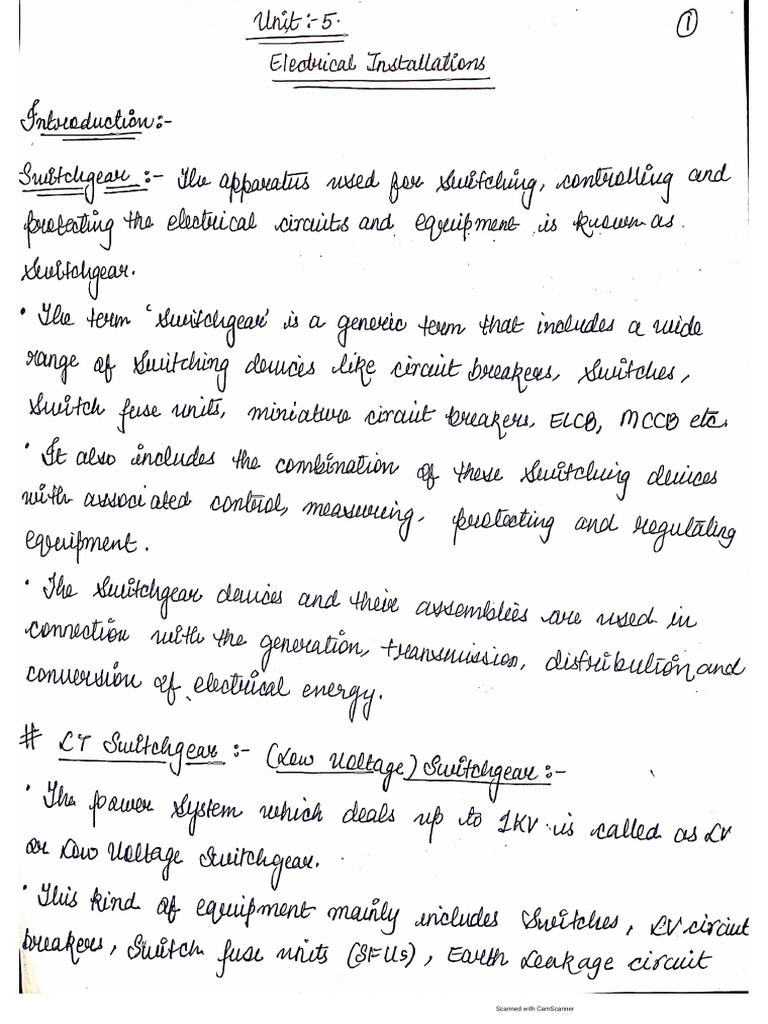 Unit:-5.
①
Electrical Installations
Introduction:-
Switchgear:- The apparatus used for switching, controlling and
protecting the electrical circuits and equipment is known as
switchgear.
• The term 'switchgear' is a generic term that includes a wide
range of switching devices like circuit breakers, switches,
switch fuse units, miniature circuit breakers, ELCB, MCCB etc.
• It also includes the combination of these switching devices
with associated control, measuring, protecting and regulating
equipment.
• The switchgear devices and their assemblies are used in
connection with the generation, transmission, distribution and
conversion of electrical energy.
# LT Switchgear:- (Low Voltage) Switchgear:-
• The power system which deals up to 1KV is called as LV
or Low Voltage switchgear.
• This kind of equipment mainly includes switches, LV circuit
breakers, switch fuse units (SFUs), Earth Leakage circuit
Scanned with CamScanner